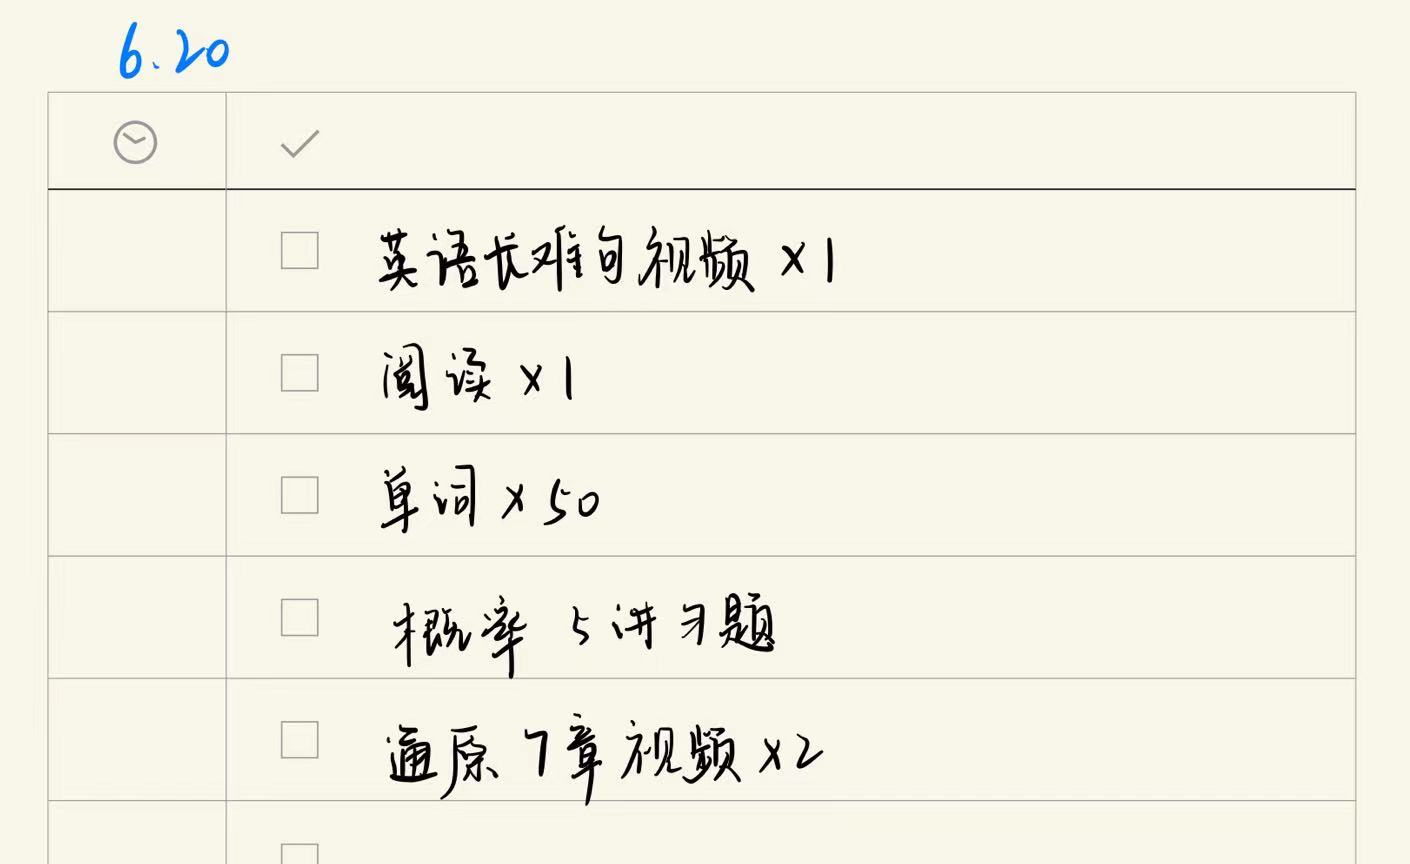 6.20
英语长难句视频 ×1
阅读 ×1
单词 ×50
概率 5讲习题
通原 7章视频 ×2